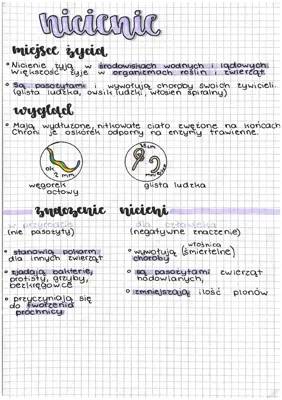 nicienie
miejsce życia
• Nicienie żyją w środowiskach wodnych i lądowych.
Większość żyje w organizmach roślin i zwierząt
• Są pasożytami i wywołują choroby swoich żywicieli.
(glista ludzka, owsik ludzki, włosień spiralny)
wygląd
• Mają wydłużone, nitkowate ciało zwężone na końcach
Chroni je oskórek odporny na enzymy trawienne.
ok.
2 mm
węgorek
octowy
glista ludzka
znaczenie nicieni
w przyrodzie
(nie pasożyty)
dla człowieka
(negatywne znaczenie)
• stanowią pokarm
dla innych zwierząt
• zjadają bakterie,
protisty, grzyby,
bezkręgowce
• przyczyniają się
do tworzenia
próchnicy
• wywołują włośnica
(śmiertelne)
choroby
• są pasożytami zwierząt
hodowlanych,
• zmniejszają ilość plonów